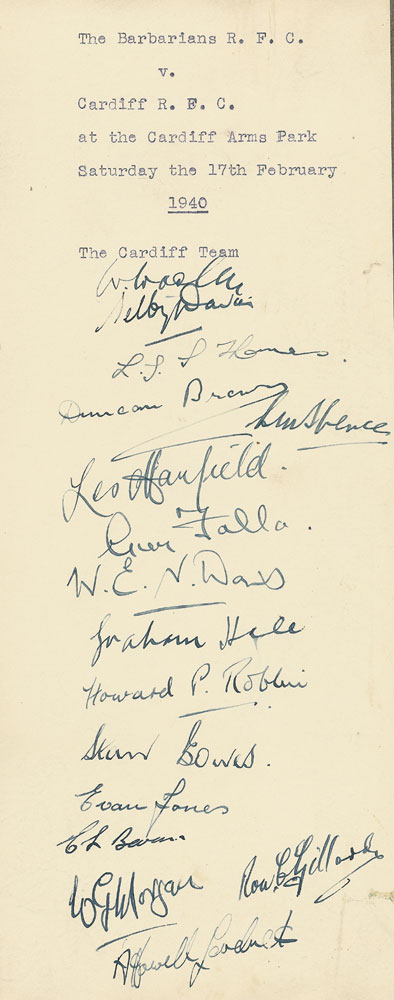 The Barbarians R. F. C.
v.
Cardiff R. F. C.
at the Cardiff Arms Park
Saturday the 17th February
1940
The Cardiff Team
Selby Davies
L.S. S Thomas.
Duncan Brown
Spence
Les Manfield.
Falla.
W. E. N. Davis
Graham Hale
Howard P. Robbins
Evan Jones
C L Bevan
W G Morgan
Ron G Gillard
A Howell Loveluck